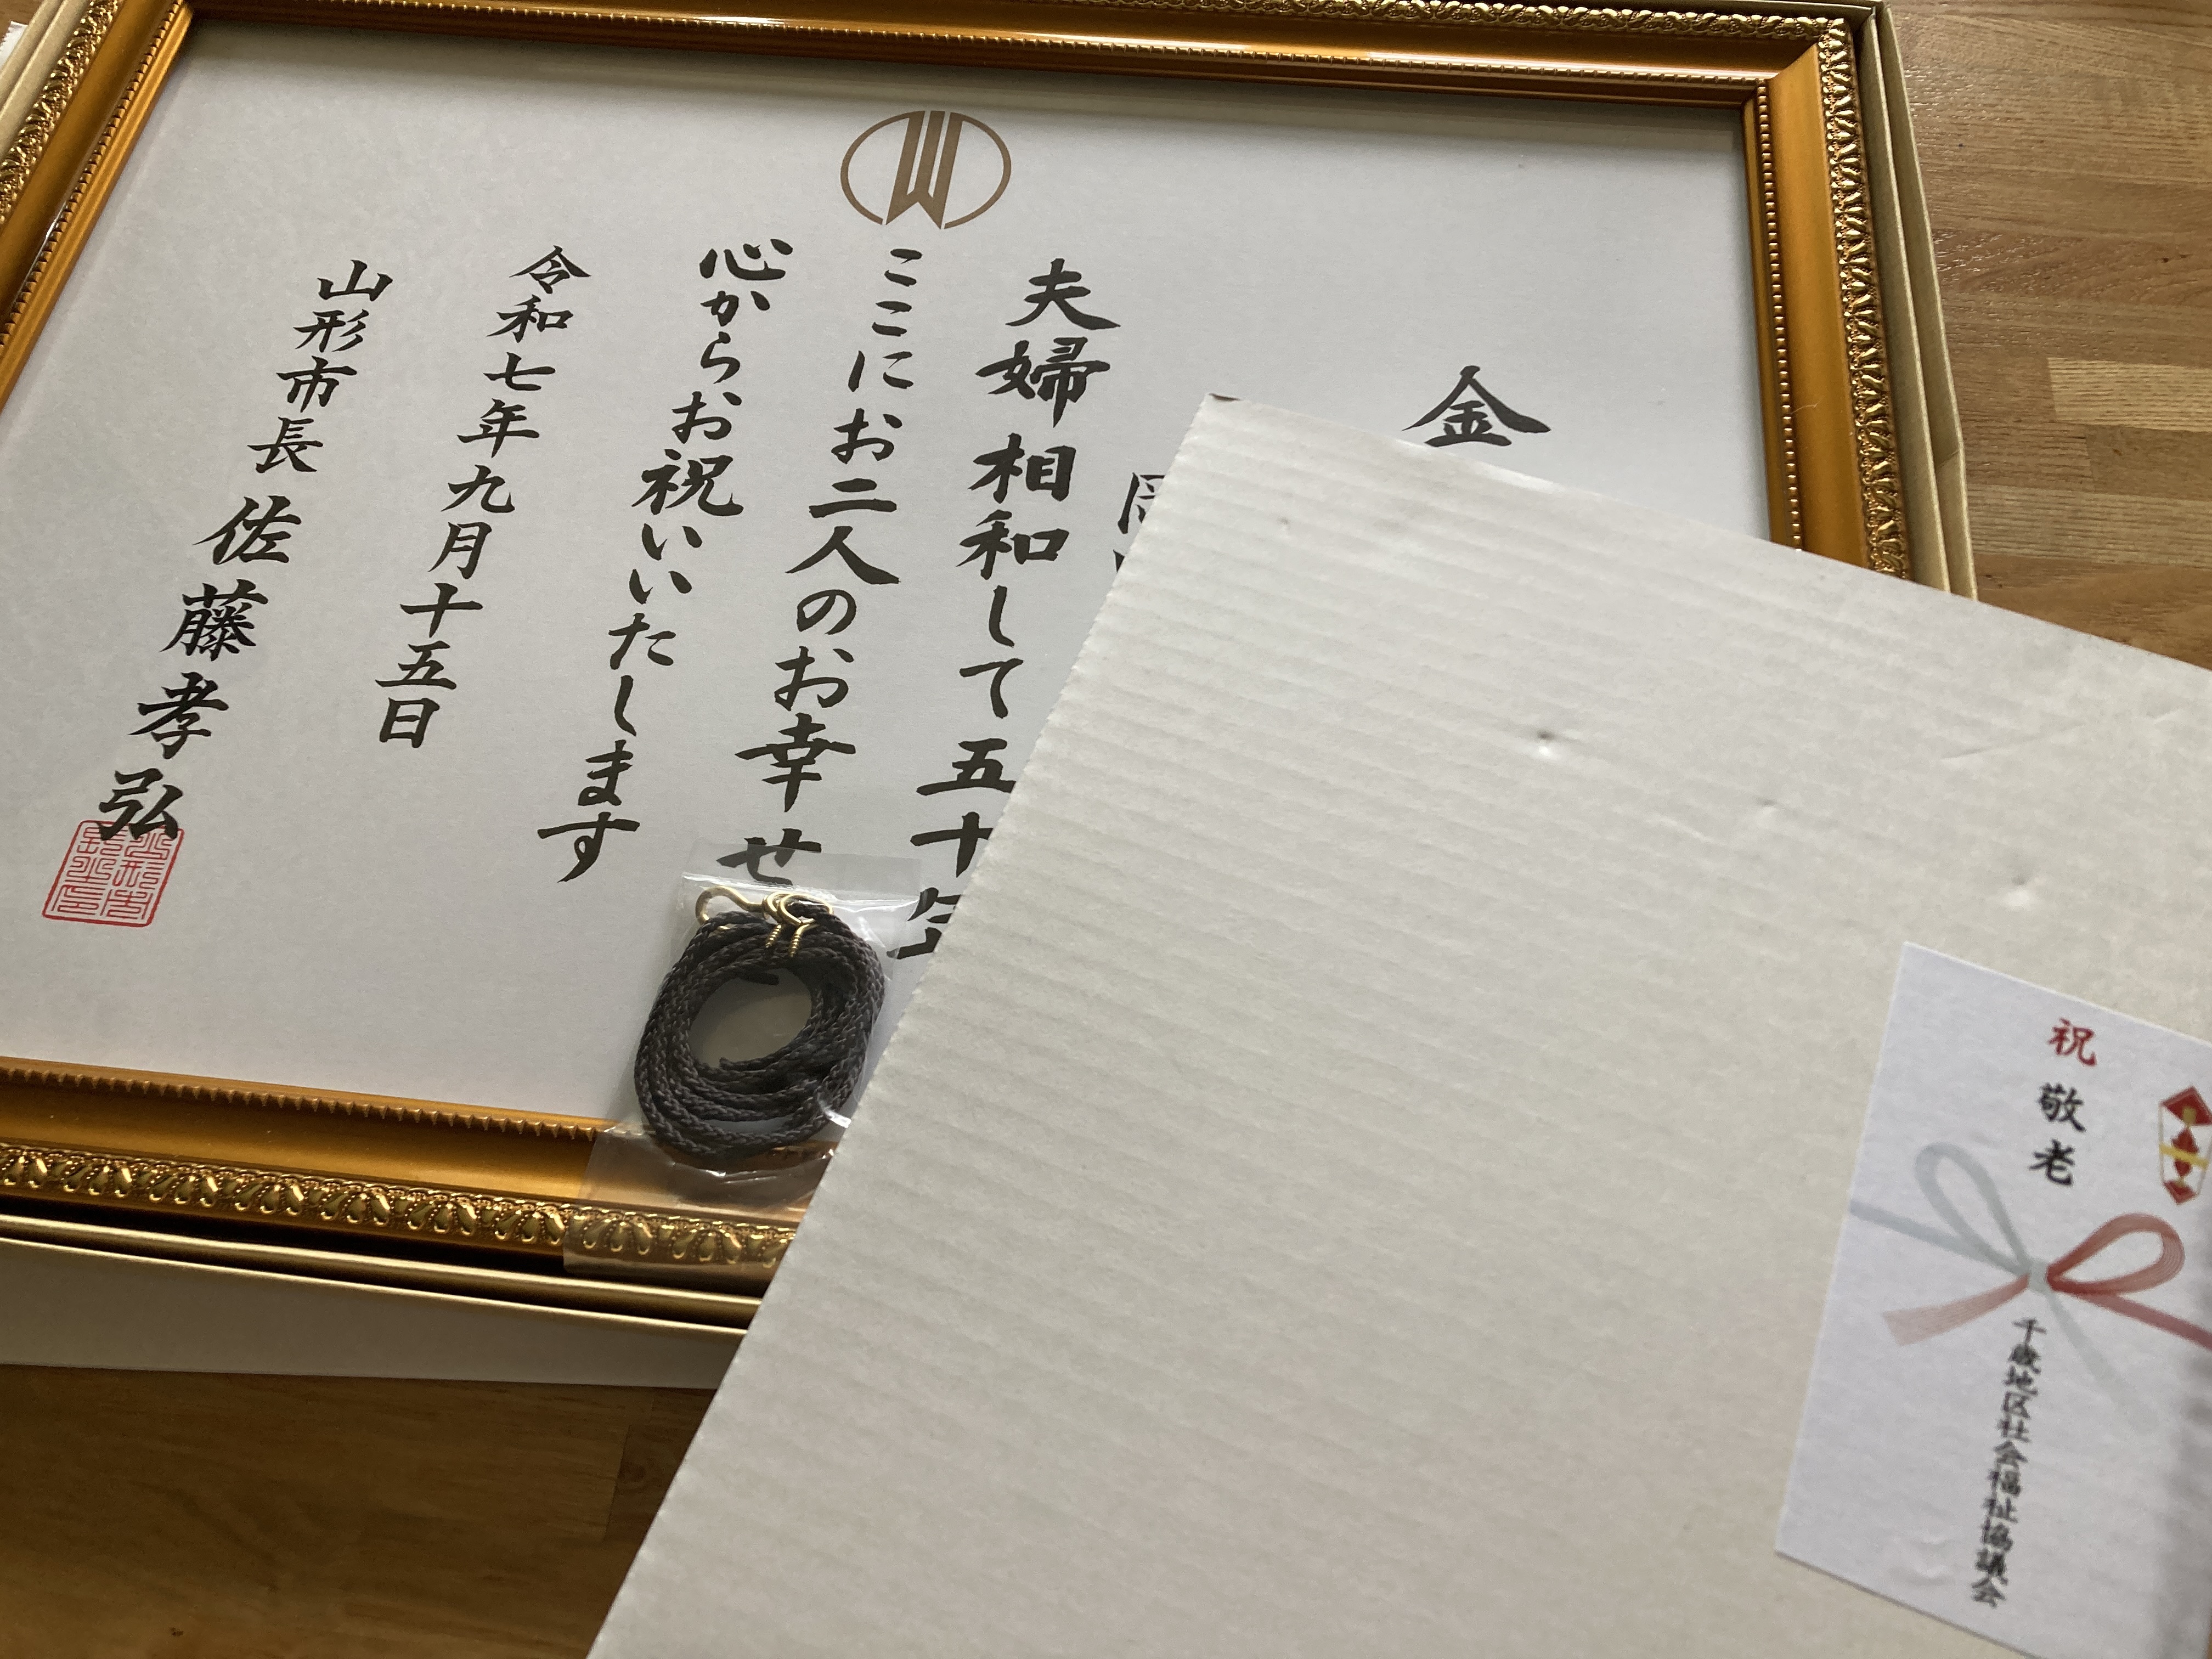 金
夫婦相和して五十年
ここにお二人のお幸せ
心からお祝いいたします
令和七年九月十五日
山形市長 佐藤孝弘
祝 敬老
千歳地区社会福祉協議会